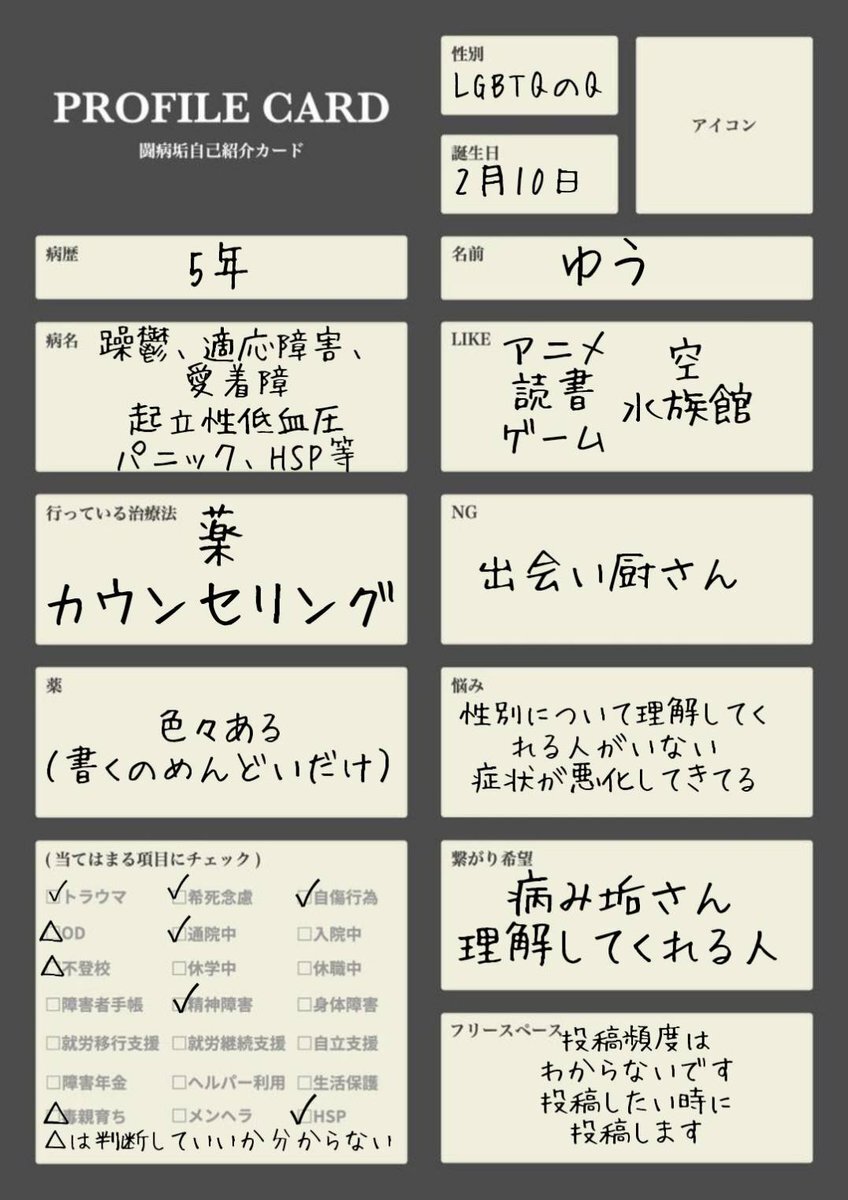 PROFILE CARD
闘病垢自己紹介カード
性別
LGBTQのQ
誕生日
2月10日
アイコン
病歴
5年
名前
ゆう
病名
躁鬱、適応障害、
愛着障
起立性低血圧
パニック、HSP等
LIKE
アニメ
読書
ゲーム
空
水族館
行っている治療法
薬
カウンセリング
NG
出会い厨さん
薬
色々ある
(書くのめんどいだけ)
悩み
性別について理解してく
れる人がいない
症状が悪化してきてる
(当てはまる項目にチェック)
✓トラウマ ✓希死念慮 ✓自傷行為
△OD ✓通院中 □入院中
△不登校 □休学中 □休職中
□障害者手帳 ✓精神障害 □身体障害
□就労移行支援 □就労継続支援 □自立支援
□障害年金 □ヘルパー利用 □生活保護
△毒親育ち □メンヘラ ✓HSP
△は判断していいか分からない
繋がり希望
病み垢さん
理解してくれる人
フリースペース
投稿頻度は
わからないです
投稿したい時に
投稿します